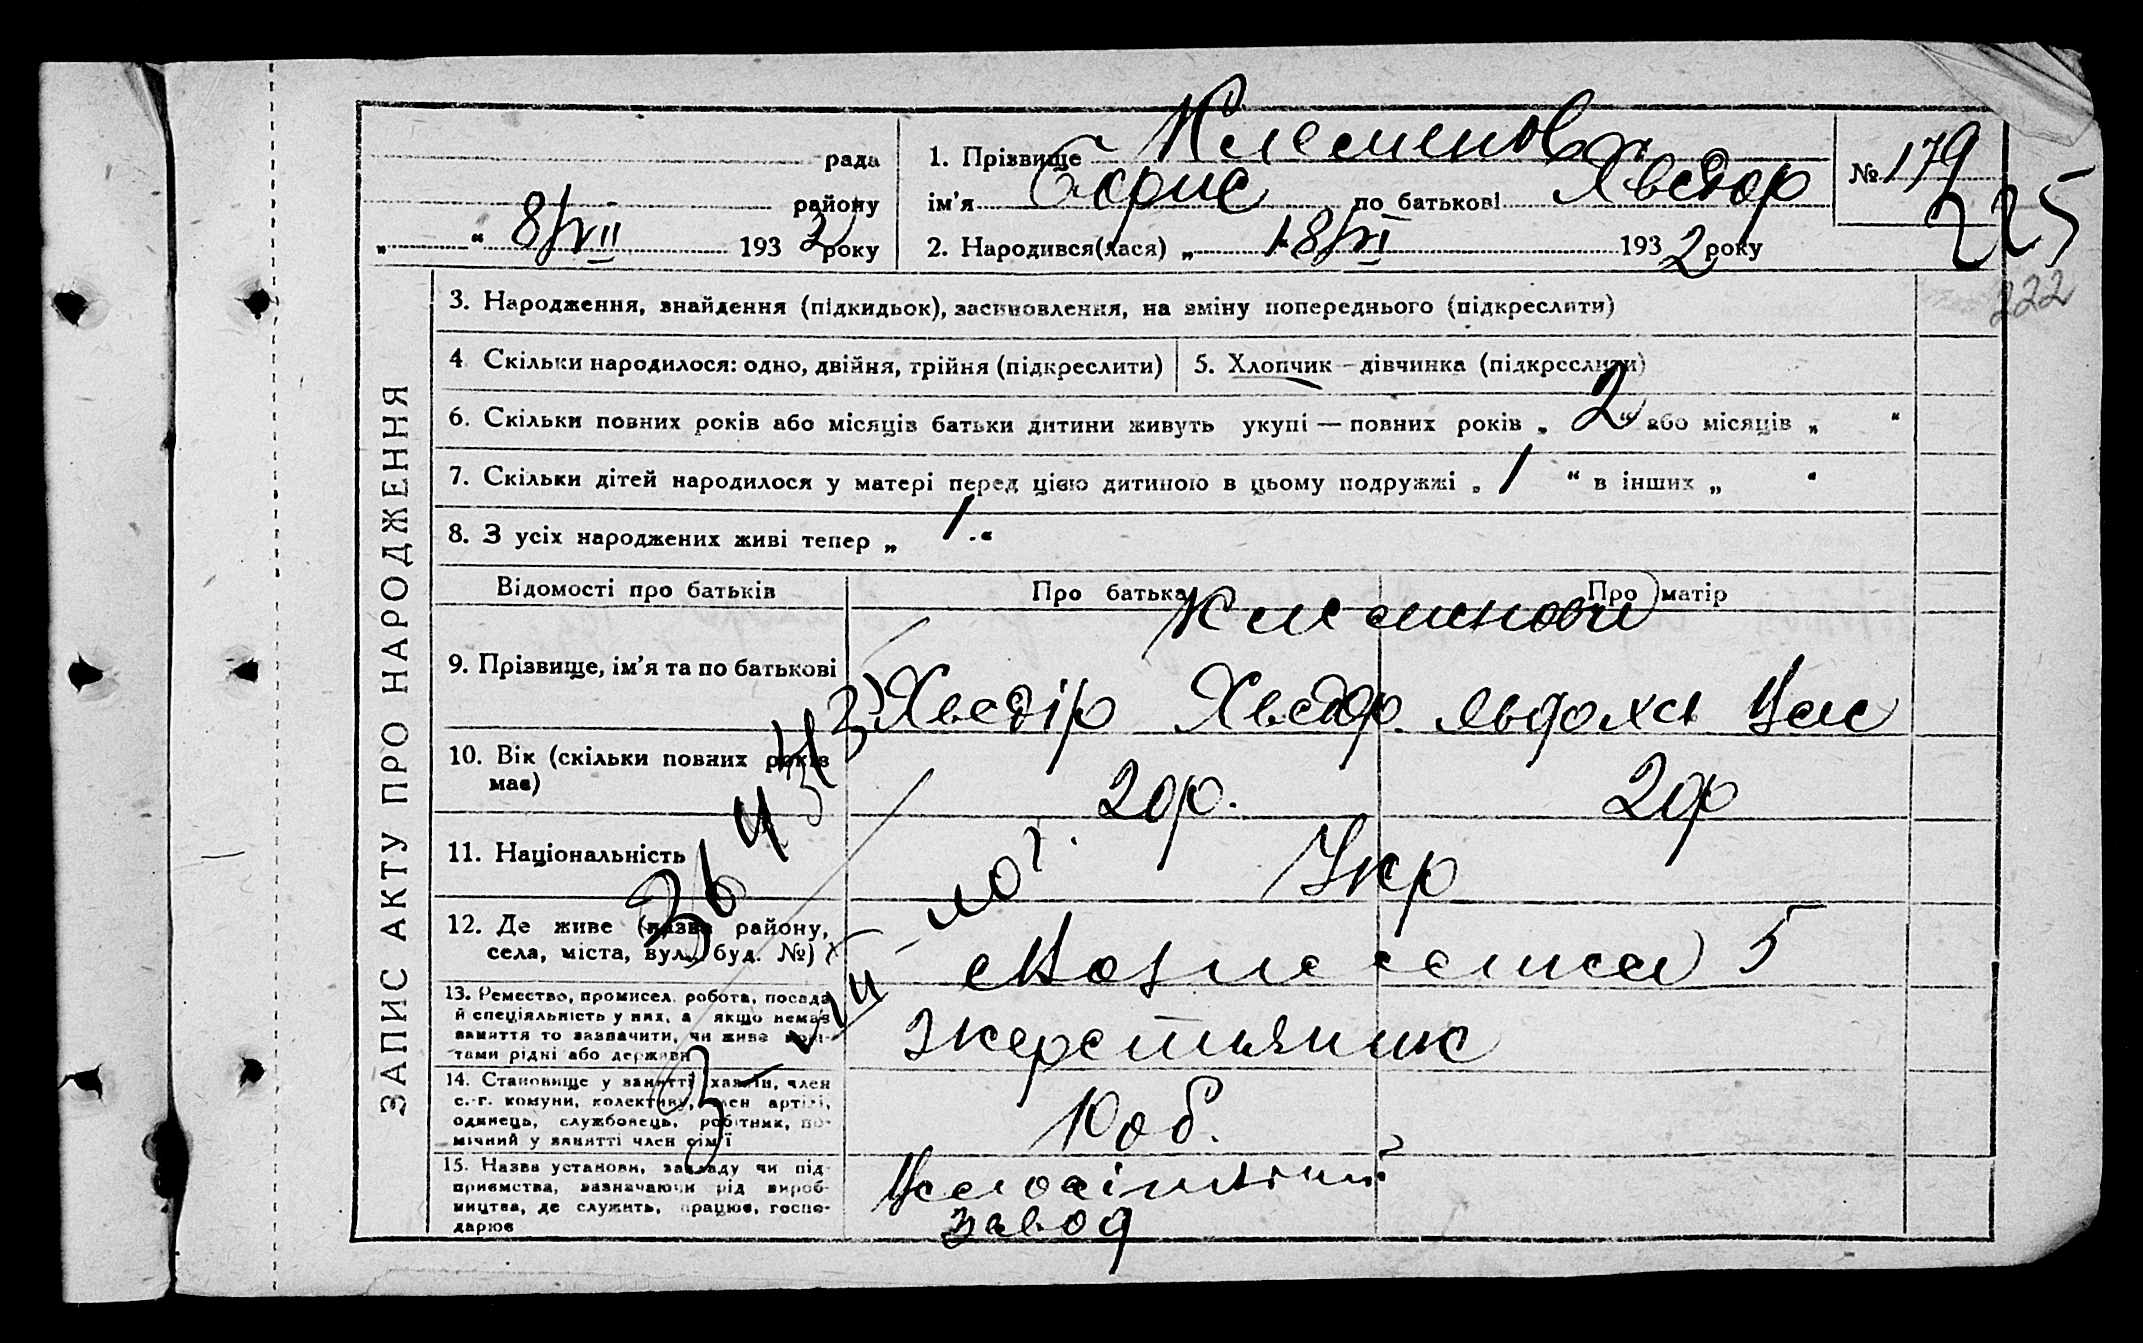 рада
району
„ “ 8/VII 1932 року
1. Прізвище Клеменов
ім'я Борис по батькові Хведор
2. Народився(лася) „ 18/VI 1932 року
№ 179
225
222
ЗАПИС АКТУ ПРО НАРОДЖЕННЯ
3. Народження, знайдення (підкидьок), засиновлення, на зміну попереднього (підкреслити)
4. Скільки народилося: одно, двійня, трійня (підкреслити)
5. Хлопчик—дівчинка (підкреслити)
6. Скільки повних років або місяців батьки дитини живуть укупі — повних років „ 2 “ або місяців „ “
7. Скільки дітей народилося у матері перед цією дитиною в цьому подружжі „ 1 “ в інших „ “
8. З усіх народжених живі тепер „ 1 “
Відомості про батьків
Про батька
Про матір
Клеменови
9. Прізвище, ім'я та по батькові
Хведір Хведор.
10. Вік (скільки повних років
має)
20р.
20р
11. Національність
Укр
12. Де живе (назва району,
села, міста, вул., буд. №)
5
13. Ремество, промисел, робота, посада
й спеціяльність у них, а якщо немає
заняття то зазначити, чи живе кош-
тами рідні або держави
14. Становище у занятті хазяїн, член
с.-г. комуни, колективу, член артілі,
одинець, службовець, робітник, по-
мічний у занятті член сім'ї
Роб.
15. Назва установи, закладу чи під-
приємства, зазначаючи рід вироб-
ництва, де служить, працює, госпо-
дарює
завод